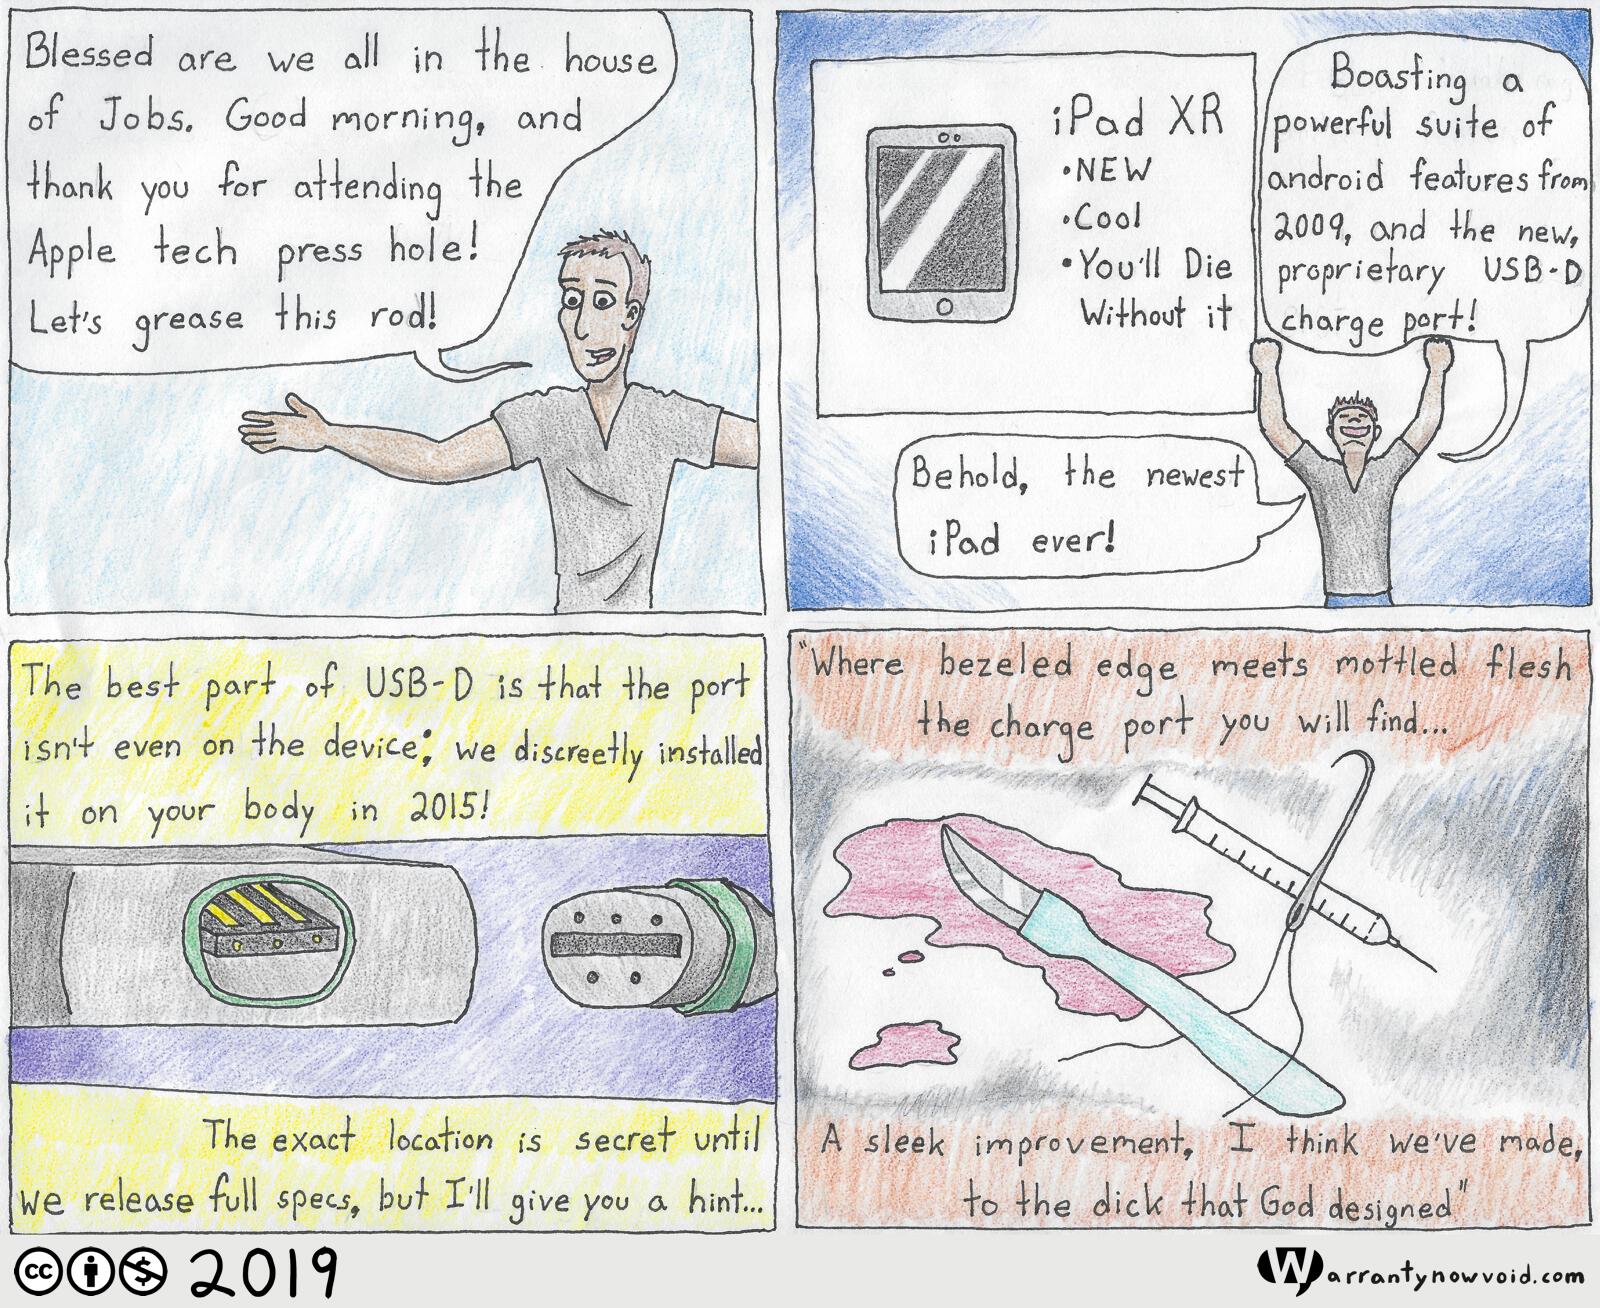 Blessed are we all in the house
of Jobs. Good morning, and
thank you for attending the
Apple tech press hole!
Let's grease this rod!
iPad XR
•NEW
•Cool
•You'll Die
Without it
Boasting a
powerful suite of
android features from
2009, and the new,
proprietary USB-D
charge port!
Behold, the newest
iPad ever!
The best part of USB-D is that the port
isn't even on the device; we discreetly installed
it on your body in 2015!
The exact location is secret until
we release full specs, but I'll give you a hint...
"Where bezeled edge meets mottled flesh
the charge port you will find...
A sleek improvement, I think we've made,
to the dick that God designed"
cc $ 2019
Warrantynowvoid.com